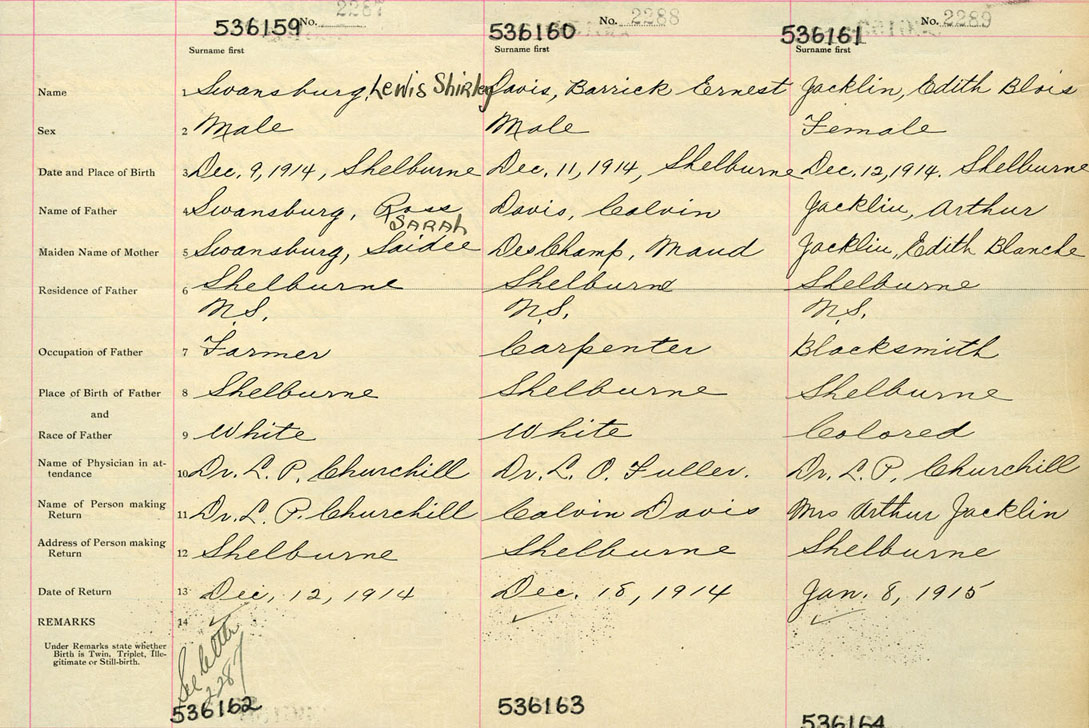 536159 No. 2287 536160 No. 2288 536161 No. 2289
Surname first Surname first Surname first
Name 1 Swansburg, Lewis Shirley Davis, Barrick Ernest Jacklin, Edith Blois
Sex 2 Male Male Female
Date and Place of Birth 3 Dec. 9, 1914, Shelburne Dec. 11, 1914, Shelburne Dec. 12, 1914. Shelburne
Name of Father 4 Swansburg, Ross Davis, Calvin Jacklin, Arthur
SARAH
Maiden Name of Mother 5 Swansburg, Saidee DesChamp, Maud Jacklin, Edith Blanche
Residence of Father 6 Shelburne Shelburne Shelburne
N.S. N.S. N.S.
Occupation of Father 7 Farmer Carpenter Blacksmith
Place of Birth of Father 8 Shelburne Shelburne Shelburne
and
Race of Father 9 White White Colored
Name of Physician in at-
tendance 10 Dr. L. P. Churchill Dr. L. O. Fuller. Dr. L. P. Churchill
Name of Person making
Return 11 Dr. L. P. Churchill Calvin Davis Mrs Arthur Jacklin
Address of Person making
Return 12 Shelburne Shelburne Shelburne
Date of Return 13 Dec, 12, 1914 Dec. 18, 1914 Jan. 8, 1915
REMARKS 14
Under Remarks state whether
Birth is Twin, Triplet, Ille-
gitimate or Still-birth.
See letter
2287
536162 536163 536164